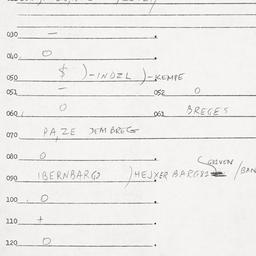 030 —
040 O
050 $ )-INDZL )-KEMPE
051 — 052 O
060 O 061 BREGES
070 PAZE JEMBREG
080 O
090 IBERNBARGS )HEJXERBARGS
100 O
110 +
120 O